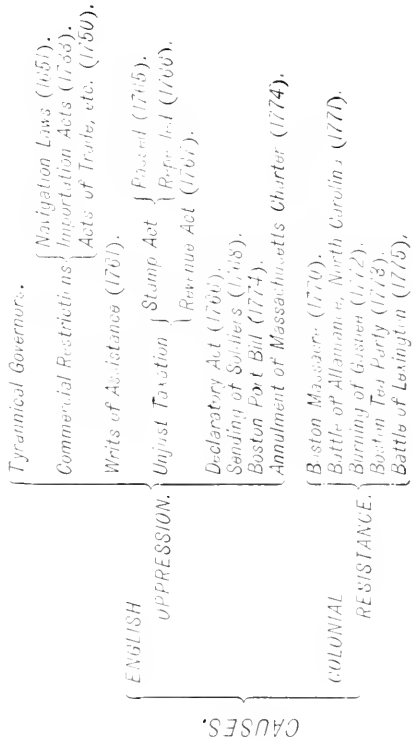 CAUSES.
ENGLISH
OPPRESSION.
Tyrannical Governors.
Commercial Restrictions
Navigation Laws (1651).
Importation Acts (1733).
Acts of Trade, etc. (1750).
Writs of Assistance (1761).
Unjust Taxation
Stamp Act
Passed (1765).
Repealed (1766).
Revenue Act (1767).
Declaratory Act (1766).
Sending of Soldiers (1768).
Boston Port Bill (1774).
Annulment of Massachusetts Charter (1774).
COLONIAL
RESISTANCE.
Boston Massacre (1770).
Battle of Allamance, North Carolina (1771).
Burning of Gaspee (1772).
Boston Tea Party (1773).
Battle of Lexington (1775).